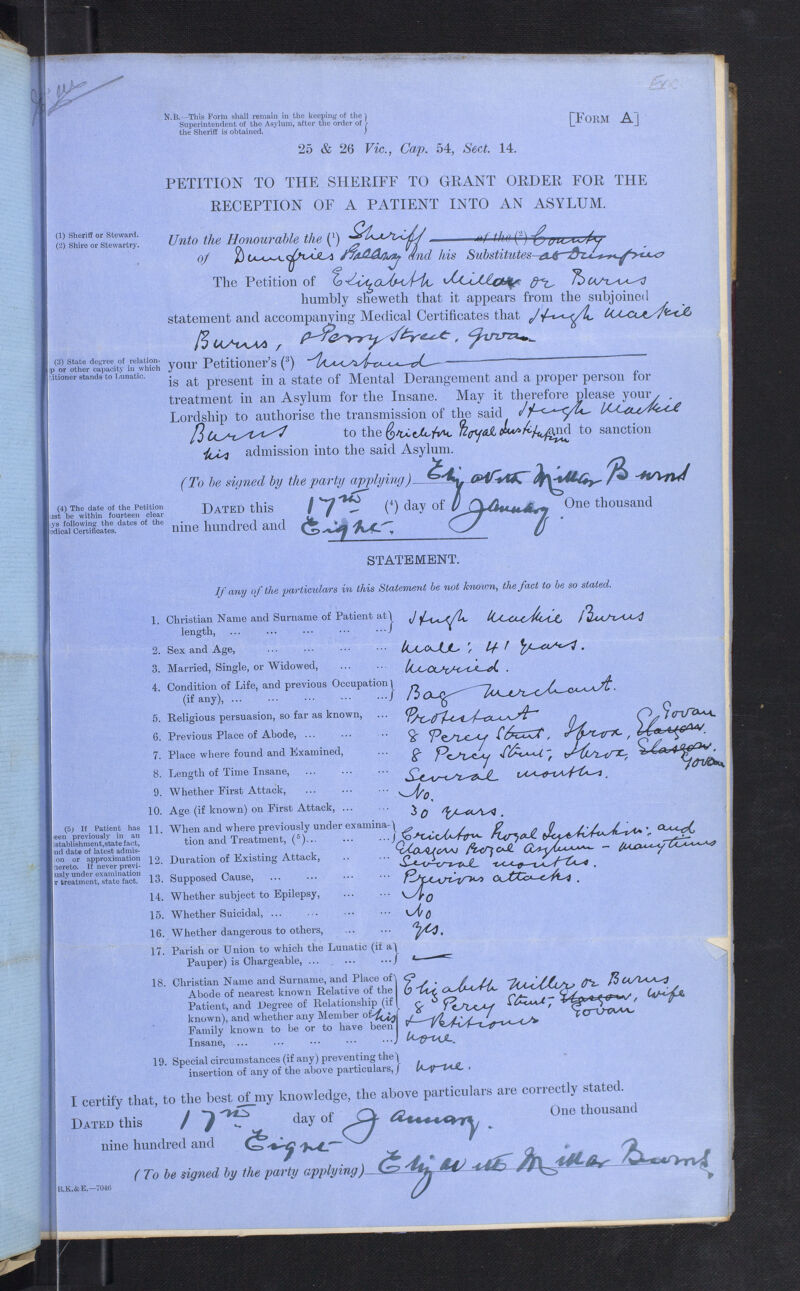 Exc
N.B.—This Form shall remain in the keeping of the
Superintendent of the Asylum, after the order of
the Sheriff is obtained.
[FORM A]
25 & 26 Vic., Cap. 54, Sect. 14.
PETITION TO THE SHERIFF TO GRANT ORDER FOR THE
RECEPTION OF A PATIENT INTO AN ASYLUM.
(1) Sheriff or Steward.
(2) Shire or Stewartry.
Unto the Honourable the (1) Sheriff of the (2) County
of Dumfries & Galloway and his Substitutes at Dumfries
The Petition of Elizabeth Millar or Burns
humbly sheweth that it appears from the subjoined
statement and accompanying Medical Certificates that Hugh Mackie
Burns, 8 Percy Street, Govan
(3) State degree of relation-
p or other capacity in which
itioner stands to Lunatic.
your Petitioner's (3) husband
is at present in a state of Mental Derangement and a proper person for
treatment in an Asylum for the Insane. May it therefore please your
Lordship to authorise the transmission of the said Hugh Mackie
Burns to the Crichton Royal Institution and to sanction
his admission into the said Asylum.
(To be signed by the party applying) Elizabeth Millar Burns
(4) The date of the Petition
ust be within fourteen clear
ys following the dates of the
edical Certificates.
DATED this 17th (4) day of January One thousand
nine hundred and Eight.
STATEMENT.
If any of the particulars in this Statement be not known, the fact to be so stated.
1. Christian Name and Surname of Patient at
length, ... Hugh Mackie Burns
2. Sex and Age, ... Male; 41 years.
3. Married, Single, or Widowed, ... Married.
4. Condition of Life, and previous Occupation
(if any), ... Bag Merchant.
5. Religious persuasion, so far as known, ... Protestant
6. Previous Place of Abode, ... 8 Percy Street, Ibrox, Glasgow. Govan
7. Place where found and Examined, ... 8 Percy Street, Ibrox, Glasgow. Govan
8. Length of Time Insane, ... Several months.
9. Whether First Attack, ... No.
10. Age (if known) on First Attack, ... 30 years.
(5) If Patient has
een previously in an
stablishment, state fact,
nd date of latest admis-
on or approximation
hereto. If never previ-
usly under examination
r treatment, state fact.
11. When and where previously under examina-
tion and Treatment, (5)... Crichton Royal Institution; and
Glasgow Royal Asylum - many times
12. Duration of Existing Attack, ... Several months.
13. Supposed Cause, ... Previous attacks.
14. Whether subject to Epilepsy, ... No
15. Whether Suicidal, ... No
16. Whether dangerous to others, ... Yes.
17. Parish or Union to which the Lunatic (if a
Pauper) is Chargeable, ... —
18. Christian Name and Surname, and Place of
Abode of nearest known Relative of the
Patient, and Degree of Relationship (if
known), and whether any Member of his
Family known to be or to have been
Insane, ...
Elizabeth Miller or Burns
8 Percy Street, Glasgow, Govan wife
& Petitioner
none.
19. Special circumstances (if any) preventing the
insertion of any of the above particulars, none.
I certify that, to the best of my knowledge, the above particulars are correctly stated.
DATED this 17th day of January. One thousand
nine hundred and Eight
(To be signed by the party applying) Elizabeth Millar Burns
B.K.& E.—7046